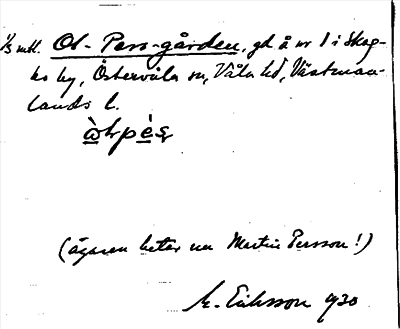 ⅓ mtl. Ol-Pers-gården, gd å nr 1 i Skog-
bo by, Östervåla sn, Våla hd, Västman-
lands l.
(ägaren heter nu Martin Persson!)
M. Eriksson 1930